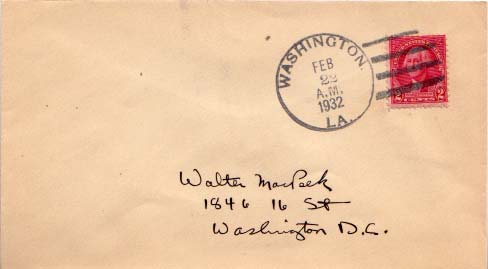 WASHINGTON.
FEB
22
A.M.
1932
LA.
2 2
CENTS
Walter MacPeek
1846 16 St
Washington D.C.